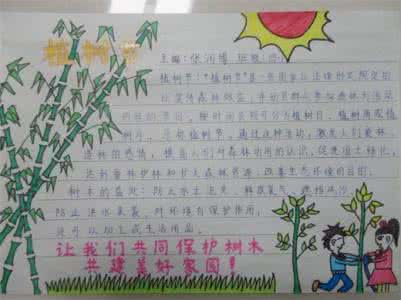 植树节
主编：张润博 班级：
植树节：“植树节”是一些国家以法律形式规定的
以宣传森林效益，并动员群众参加造林为活动
内容的节日，按时间长短可分为植树日、植树周或植
树月，总称植树节。通过这种活动，激发人们爱林、
造林的感情，提高人们对森林功用的认识，促进国土绿化，
达到爱林护林和扩大森林资源、改善生态环境的目的。
树木的益处：防止水土流失，释放氧气，
防止洪水泛滥，对环境有保护作用，
还可以加工成生活用品。
让我们共同保护树木
共建美好家园！